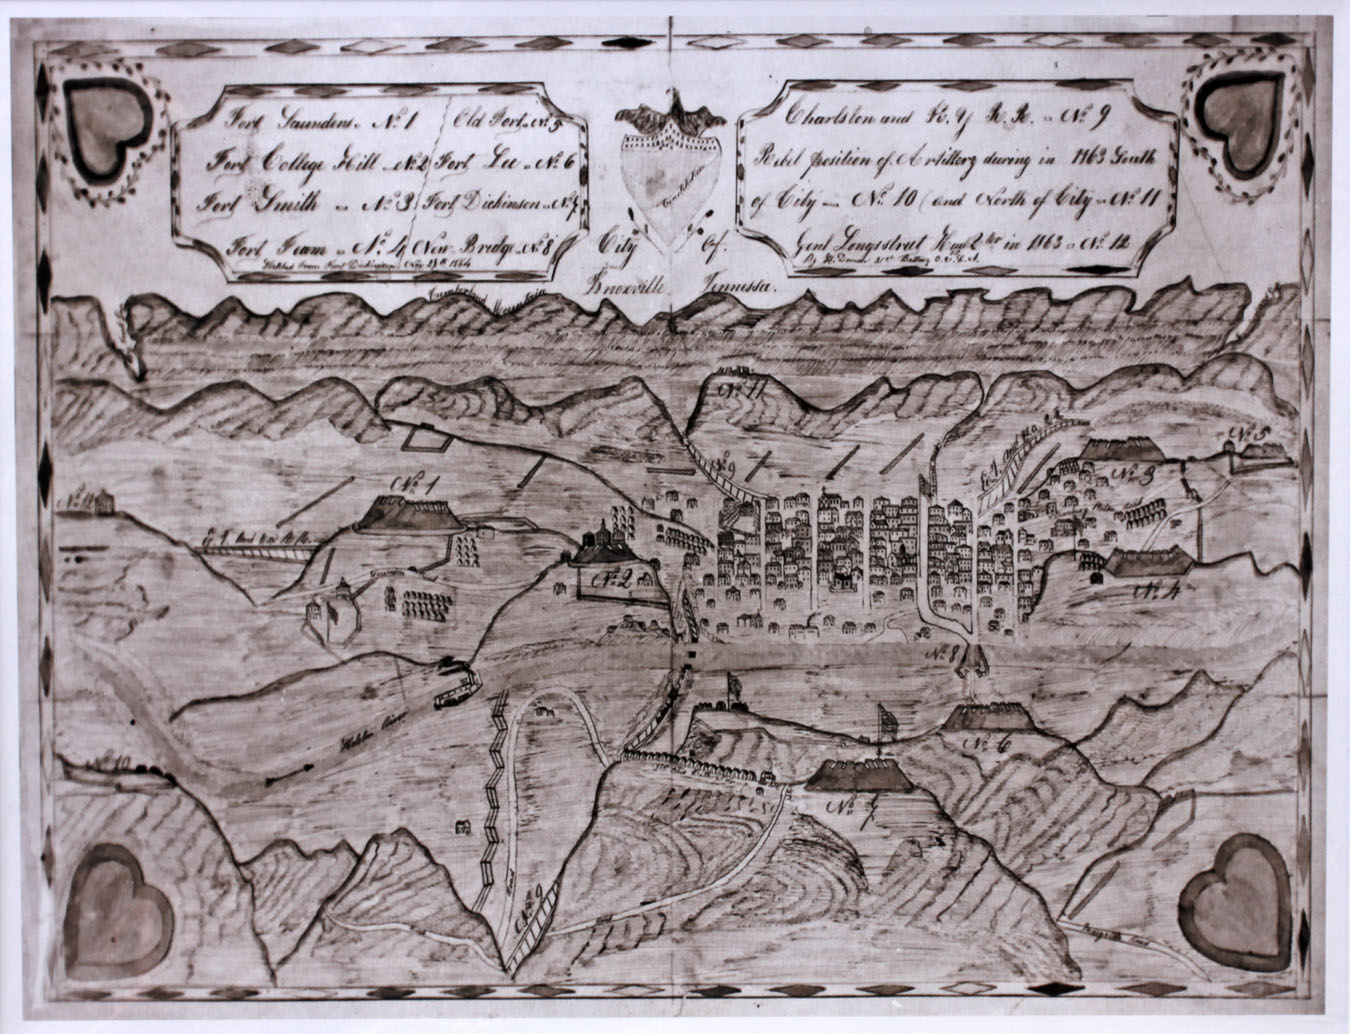 Fort Saunders. „ No. 1 Old Fort „ No. 5
Fort College Hill „ No. 2 Fort Lee „ No. 6
Fort Smith „ No. 3 Fort Dickinson „ No. 7
Fort Team „ No. 4 New Bridge „ No. 8
Sketched from Fort Dickinson Nov 27th 1864
City Of.
Knoxville Tennessa.
Charlston and K. Y R. R. „ No. 9
Rebel position of Artillery during in 1863 South
of City — No. 10 (and North of City „ No. 11
Genl Longsstreet Hwq 2ter in 1863 „ No. 12
21st Battery O. V. L. A.
Cumberland Mountain
No. 11
No. 9
No. 5
No. 3
No. 1
No. 2
No. 4
No. 8
Holston River
No. 6
No. 10
No. 7
Road
No. 9
Road